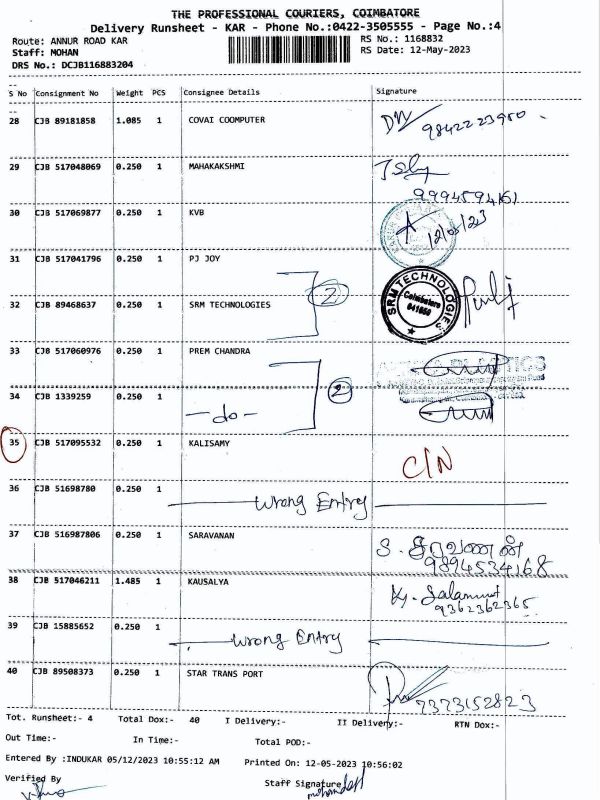 THE PROFESSIONAL COURIERS, COIMBATORE
Delivery Runsheet - KAR - Phone No.:0422-3505555 - Page No.:4
Route: ANNUR ROAD KAR
RS No.: 1168832
Staff: MOHAN
RS Date: 12-May-2023
DRS No.: DCJB116883204
S No Consignment No Weight PCS Consignee Details Signature
28 CJB 89181858 1.085 1 COVAI COOMPUTER 9842223950
29 CJB 517048069 0.250 1 MAHAKAKSHMI
9994594161
30 CJB 517069877 0.250 1 KVB 12/05/23
31 CJB 517041796 0.250 1 PJ JOY
2
32 CJB 89468637 0.250 1 SRM TECHNOLOGIES SRM TECHNOLOGIES Coimbatore
33 CJB 517060976 0.250 1 PREM CHANDRA
2
34 CJB 1339259 0.250 1 -do-
35 CJB 517095532 0.250 1 KALISAMY C/N
36 CJB 51698780 0.250 1 Wrong Entry
37 CJB 516987806 0.250 1 SARAVANAN S. சரவணன்
9894534168
38 CJB 517046211 1.485 1 KAUSALYA
9362362365
39 CJB 15885652 0.250 1 Wrong Entry
40 CJB 89508373 0.250 1 STAR TRANS PORT 7373152823
Tot. Runsheet:- 4 Total Dox:- 40 I Delivery:- II Delivery:- RTN Dox:-
Out Time:- In Time:- Total POD:-
Entered By :INDUKAR 05/12/2023 10:55:12 AM Printed On: 12-05-2023 10:56:02
Verified By Staff Signature